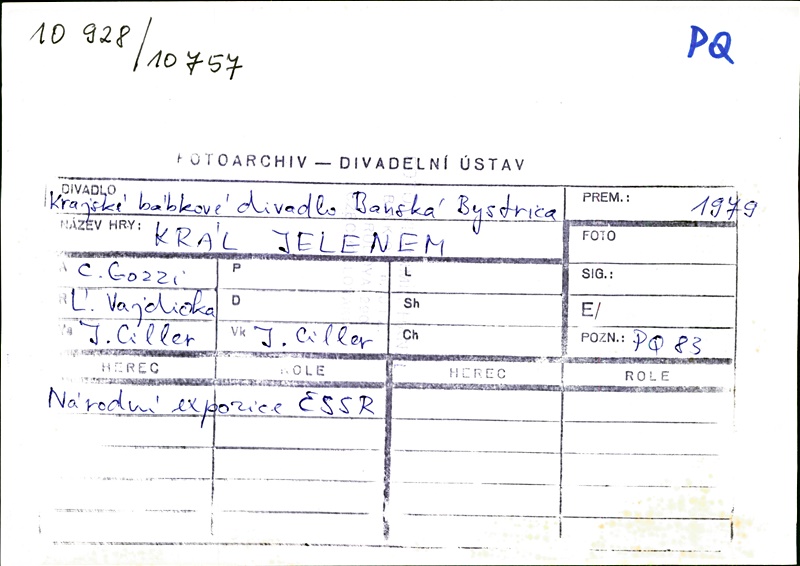 10 928/10757
PQ
FOTOARCHIV — DIVADELNÍ ÚSTAV
DIVADLO Krajské bábkové divadlo Banská Bystrica
PREM.: 1979
NÁZEV HRY: KRÁL JELENEM
FOTO
A C. Gozzi
P
L
SIG.:
R Ľ. Vajdička
D
Sh
E/
Va J. Ciller
Vk J. Ciller
Ch
POZN.: PQ 83
HEREC ROLE HEREC ROLE
Národní expozice ČSSR